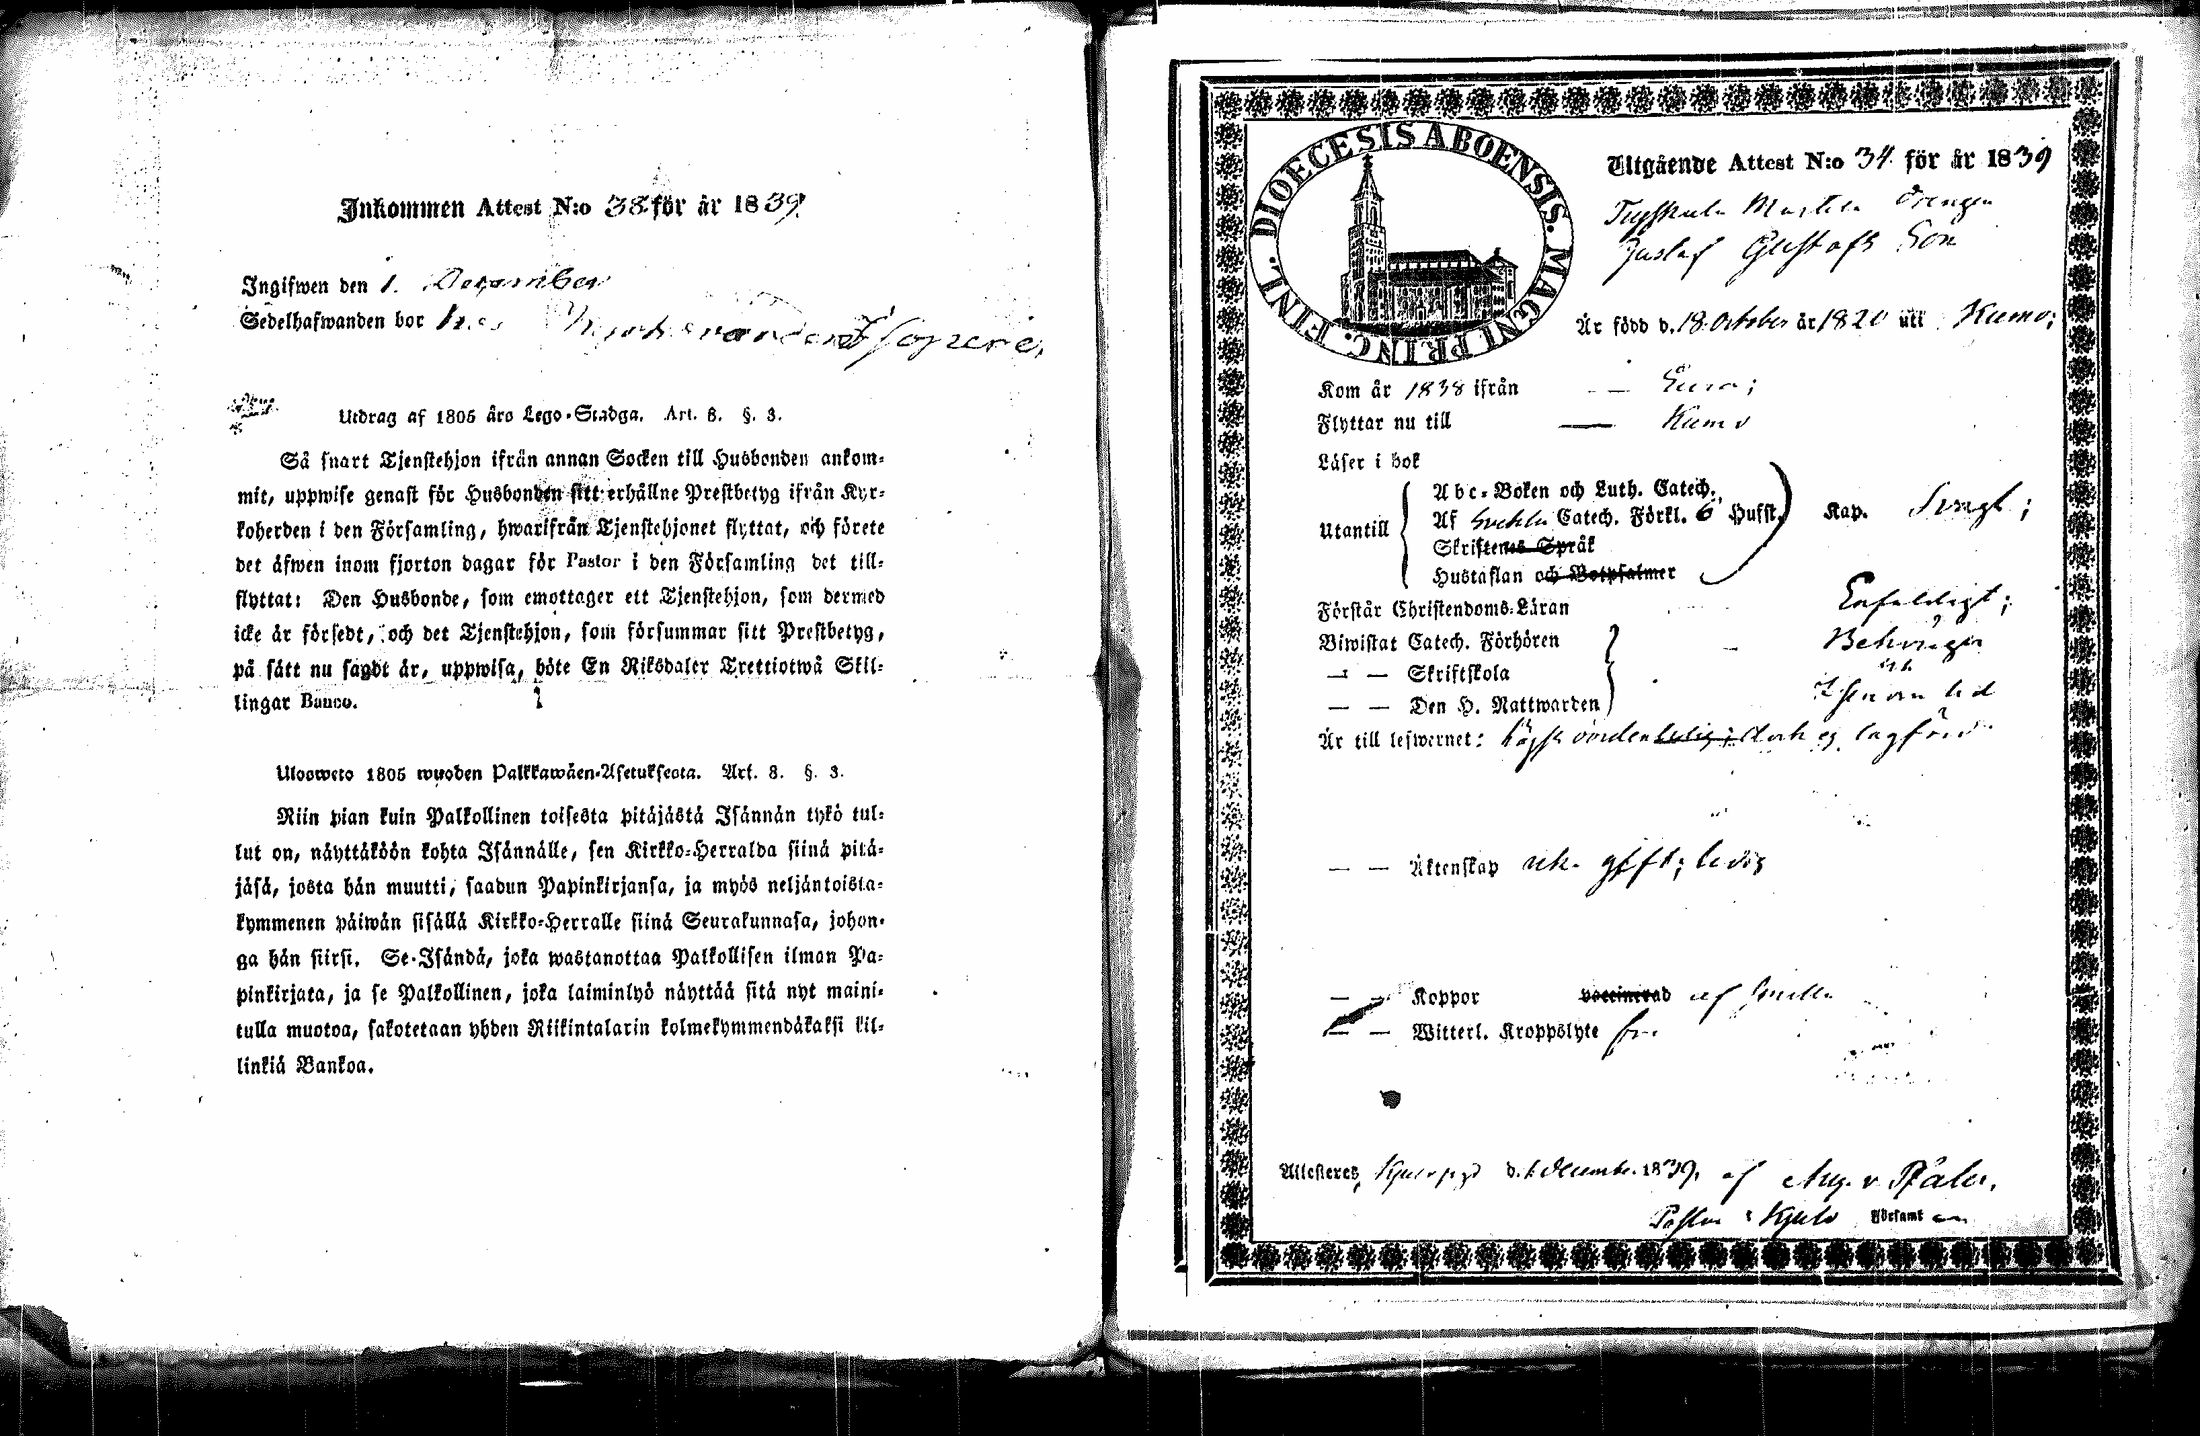 Inkommen Attest N:o 38 för år 1839.
Ingifwen den 1. December
Sedelhafwanden bor hos
Utdrag af 1805 års Lego-Stadga. Art. 8. §. 3.
Så snart Tjenstehjon ifrån annan Socken till Husbonden ankom-
mit, uppwise genast för Husbonden sitt erhållne Prestbetyg ifrån Kyr-
koherden i den Församling, hwarifrån Tjenstehjonet flyttat, och förete
det äfwen inom fjorton dagar för Pastor i den Församling det till-
flyttat: Den Husbonde, som emottager ett Tjenstehjon, som dermed
icke är försedt, och det Tjenstehjon, som försummar sitt Prestbetyg,
på sätt nu sagdt är, uppwisa, böte En Riksdaler Trettiotwå Skil-
lingar Banco.
Ulosweto 1805 wuoden Palkkawäen-Asetuksesta. Art. 8. §. 3.
Niin pian kuin Palkollinen toisesta pitäjästä Isännän tykö tul-
lut on, näyttäköön kohta Isännälle, sen Kirkko-Herralda siinä pitä-
jäsä, josta hän muutti, saadun Papinkirjansa, ja myös neljäntoista-
kymmenen päiwän sisällä Kirkko-Herralle siinä Seurakunnasa, johon-
ga hän siirsi. Se Isändä, joka wastanottaa Palkollisen ilman Pa-
pinkirjata, ja se Palkollinen, joka laiminlyö näyttää sitä nyt maini-
tulla muotoa, sakotetaan yhden Riikintalarin kolmekymmendäkaksi kil-
linkiä Bankoa.
DIOECESIS ABOENSIS. MAGNI PRINC. FINL.
Utgående Attest N:o 34 för år 1839
Drengen
Gustaf Gustafs Son
Är född d. 18 October år 1820 uti Kumo;
Kom år 1838 ifrån — Eura;
Flyttar nu till — Kumo
Läser i bok
Abc-Boken och Luth. Catech.
Utantill Af Catech. Förkl. 6 Hufst. Kap. Svagt;
Skriftens Språk
Hustaflan och Botpsalmer
Förstår Christendoms-Läran Enfaldigt;
Biwistat Catech. Förhören Behörigen
— — Skriftskola och
— — Den H. Nattwarden
Är till lefwernet: dock ej lagförd
— — Äktenskap ick. gift; ledig
— — Koppor vaccinerad af
— — Witterl. Kroppslyte fri
Attesteres, d. 1 Decembr. 1839, af Aug. v. Pfaler,
Pastor i Kjulo Församl